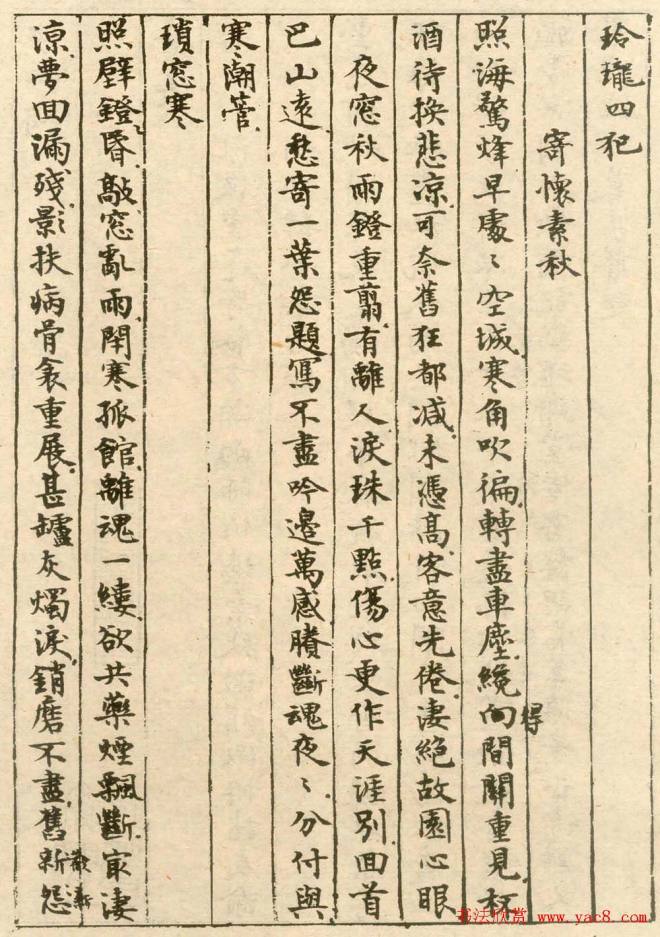 玲瓏四犯
寄懷素秋
照海驚烽早處〻空城寒角吹徧轉盡車塵纔得向間關重見杯
酒待換悲凉可奈舊狂都减未憑高客意先倦淒絕故園心眼
夜窓秋雨鐙重翦有離人淚珠千點傷心更作天涯別回首
巴山遠愁寄一葉怨題寫不盡吟邊萬感賸斷魂夜〻分付與
寒潮管
瑣窓寒
照壁鐙昏敲窓亂雨閉寒孤館離魂一縷欲共藥煙飄斷冣淒
凉夢回漏殘影扶病骨衾重展甚罏灰燭淚銷磨不盡舊新怨
书法欣赏 www.yac8.com